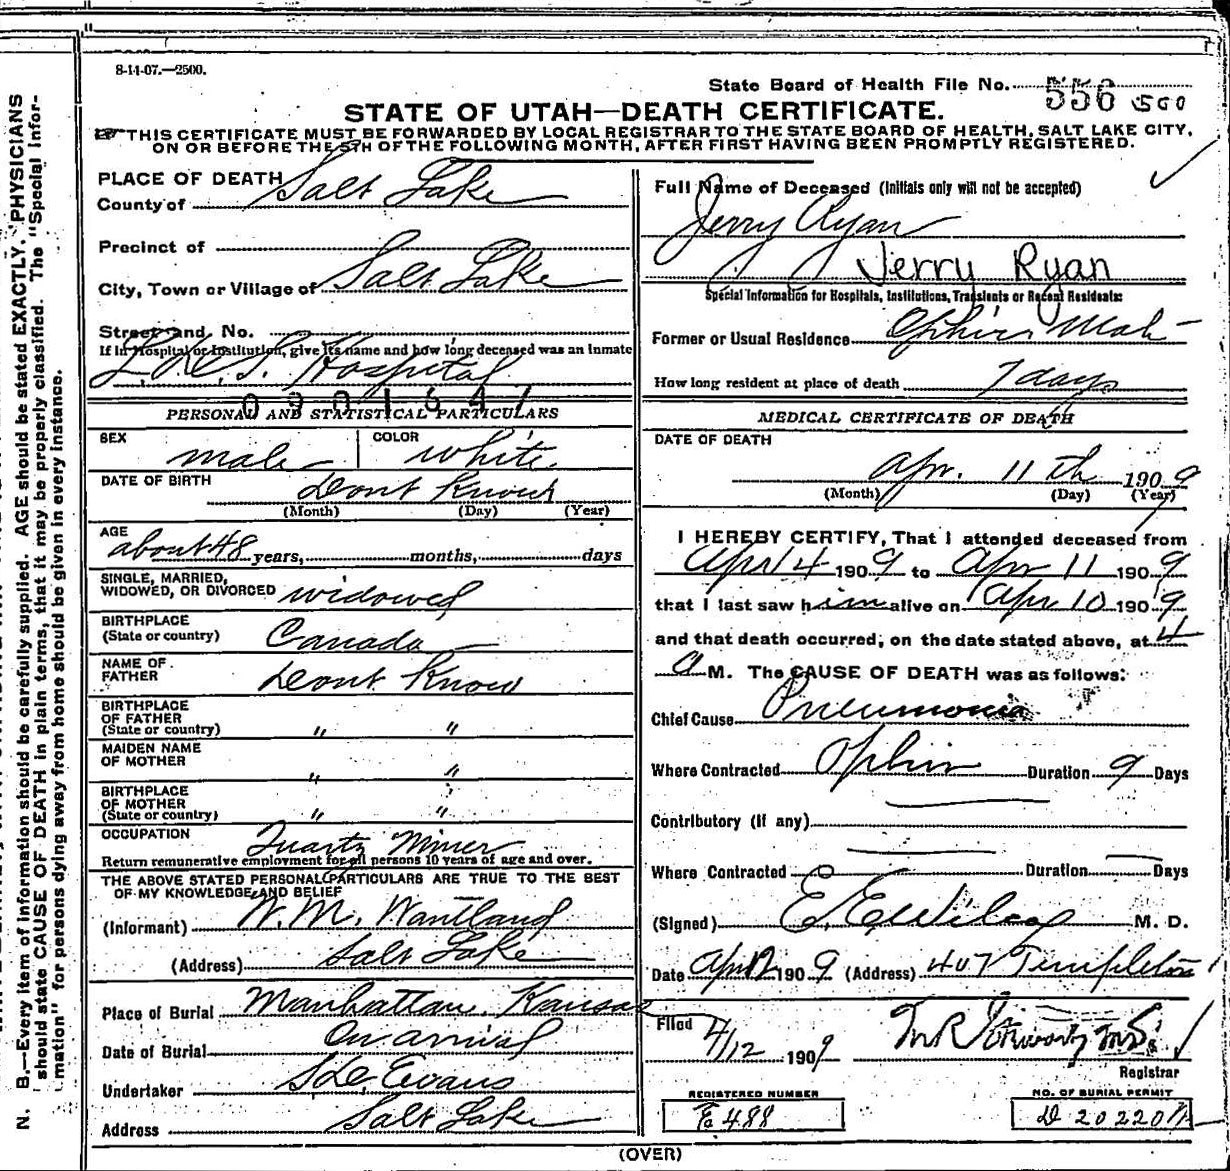 8-14-07.—2500.
State Board of Health File No. 556 500
STATE OF UTAH—DEATH CERTIFICATE.
THIS CERTIFICATE MUST BE FORWARDED BY LOCAL REGISTRAR TO THE STATE BOARD OF HEALTH, SALT LAKE CITY,
ON OR BEFORE THE 5TH OF THE FOLLOWING MONTH, AFTER FIRST HAVING BEEN PROMPTLY REGISTERED.
N. B.—Every item of information should be carefully supplied. AGE should be stated EXACTLY. PHYSICIANS
should state CAUSE OF DEATH in plain terms, that it may be properly classified. The "Special Infor-
mation" for persons dying away from home should be given in every instance.
PLACE OF DEATH
County of Salt Lake
Precinct of
City, Town or Village of Salt Lake
Street and No.
If in Hospital or Institution, give its name and how long deceased was an inmate
L. D. S. Hospital
0901647
PERSONAL AND STATISTICAL PARTICULARS
SEX male COLOR white
DATE OF BIRTH Dont Know
(Month) (Day) (Year)
AGE about 48 years, months, days
SINGLE, MARRIED,
WIDOWED, OR DIVORCED widowed
BIRTHPLACE
(State or country) Canada
NAME OF
FATHER Dont Know
BIRTHPLACE
OF FATHER
(State or country) " "
MAIDEN NAME
OF MOTHER " "
BIRTHPLACE
OF MOTHER
(State or country) " "
OCCUPATION Quartz Miner
Return remunerative employment for all persons 10 years of age and over.
THE ABOVE STATED PERSONAL PARTICULARS ARE TRUE TO THE BEST
OF MY KNOWLEDGE AND BELIEF
(Informant) W. M. Wantland
(Address) Salt Lake
Place of Burial Manhattan, Kansas
Date of Burial On arrival
Undertaker Evans
Address Salt Lake
Full Name of Deceased (Initials only will not be accepted)
Jerry Ryan
Jerry Ryan
Special Information for Hospitals, Institutions, Transients or Recent Residents:
Former or Usual Residence Ophir
How long resident at place of death 7 days
MEDICAL CERTIFICATE OF DEATH
DATE OF DEATH
Apr. 11th 1909
(Month) (Day) (Year)
I HEREBY CERTIFY, That I attended deceased from
Apr 4 1909 to Apr 11 1909
that I last saw him alive on Apr 10 1909
and that death occurred, on the date stated above, at 4
a M. The CAUSE OF DEATH was as follows:
Chief Cause Pneumonia
Where Contracted Ophir Duration 9 Days
Contributory (if any)
Where Contracted Duration Days
(Signed) E. E. Wilcox M. D.
Date Apr 12 1909 (Address) 407 Templeton
Filed 4/12 1909
Registrar
REGISTERED NUMBER
E 488
NO. OF BURIAL PERMIT
D 20220
(OVER)